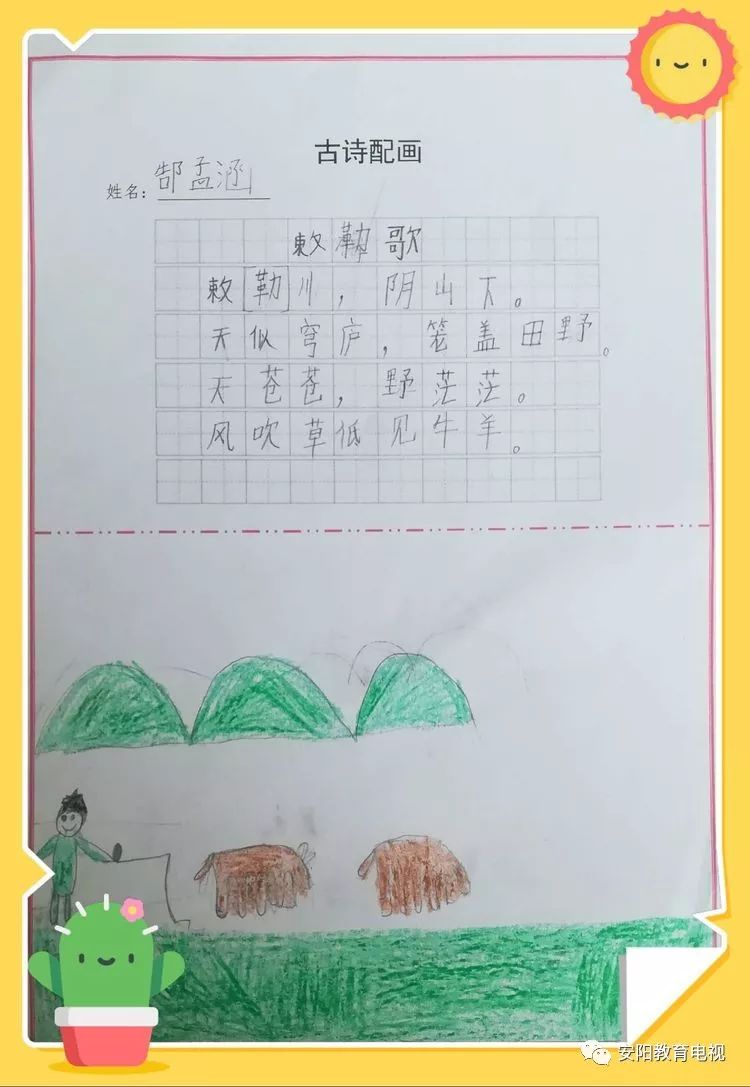 古诗配画
姓名：郜孟涵
敕勒歌
敕勒川，阴山下。
天似穹庐，笼盖田野。
天苍苍，野茫茫。
风吹草低见牛羊。
安阳教育电视